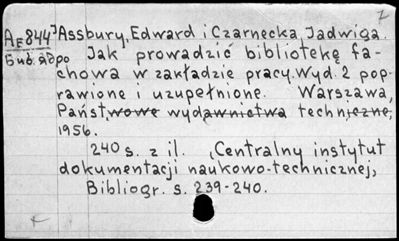 AE844 Assbury, Edward i Czarnecka, Jadwiga.
Jak prowadzić bibliotekę fa-
chową w zakładzie pracy. Wyd. 2 pop-
rawione i uzupełnione. Warszawa,
Państwowe wydawnictwa techniczne,
1956.
240 s. z il. (Centralny instytut
dokumentacji naukowo-technicznej)
Bibliogr. s. 239-240.